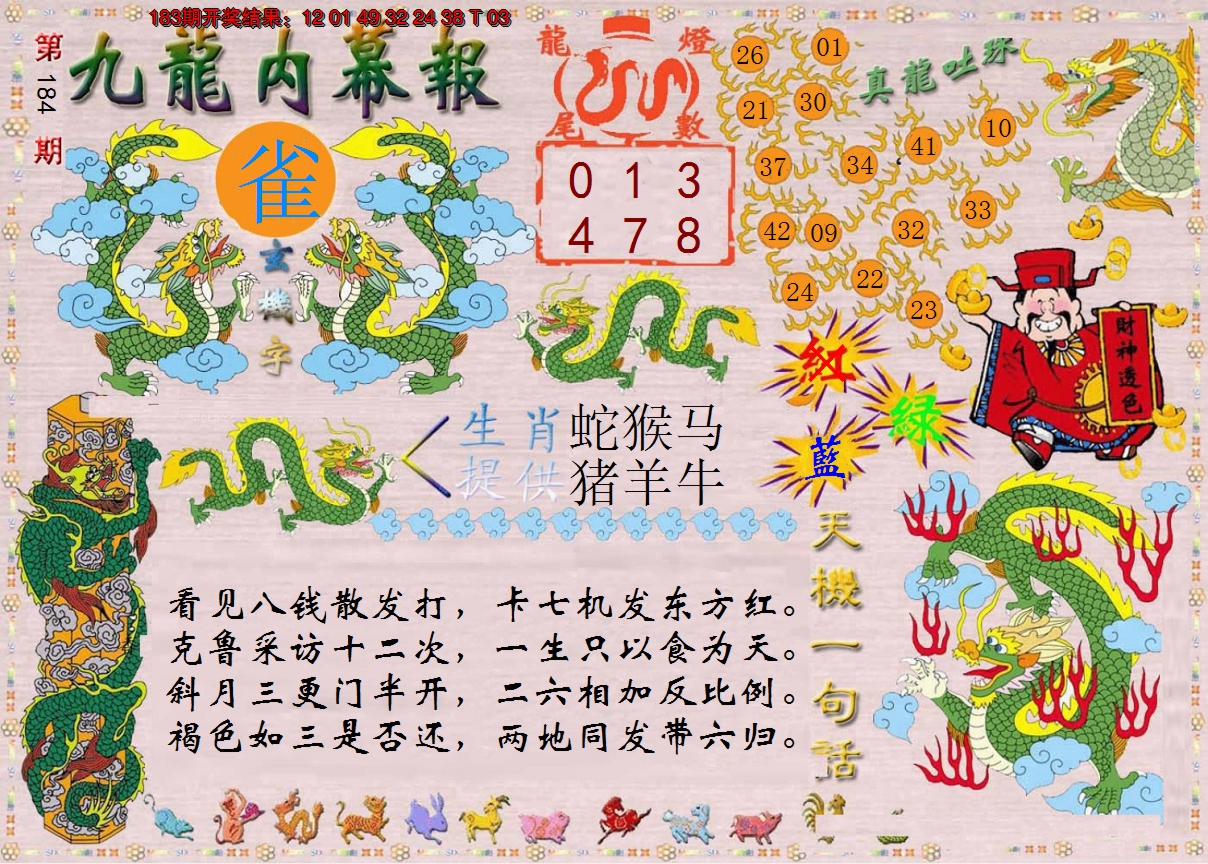 183期开奖结果：12 01 49 32 24 38 T 03
第184期
九龍内幕報
龍燈
尾數
真龍吐珠
雀
玄機字
0 1 3
4 7 8
26
01
21
30
41
10
37
34
33
42
09
32
24
22
23
財神透色
紅
綠
藍
生肖 蛇猴马
提供 猪羊牛
天機一句話
看见八钱散发打，卡七机发东方红。
克鲁采访十二次，一生只以食为天。
斜月三更门半开，二六相加反比例。
褐色如三是否还，两地同发带六归。